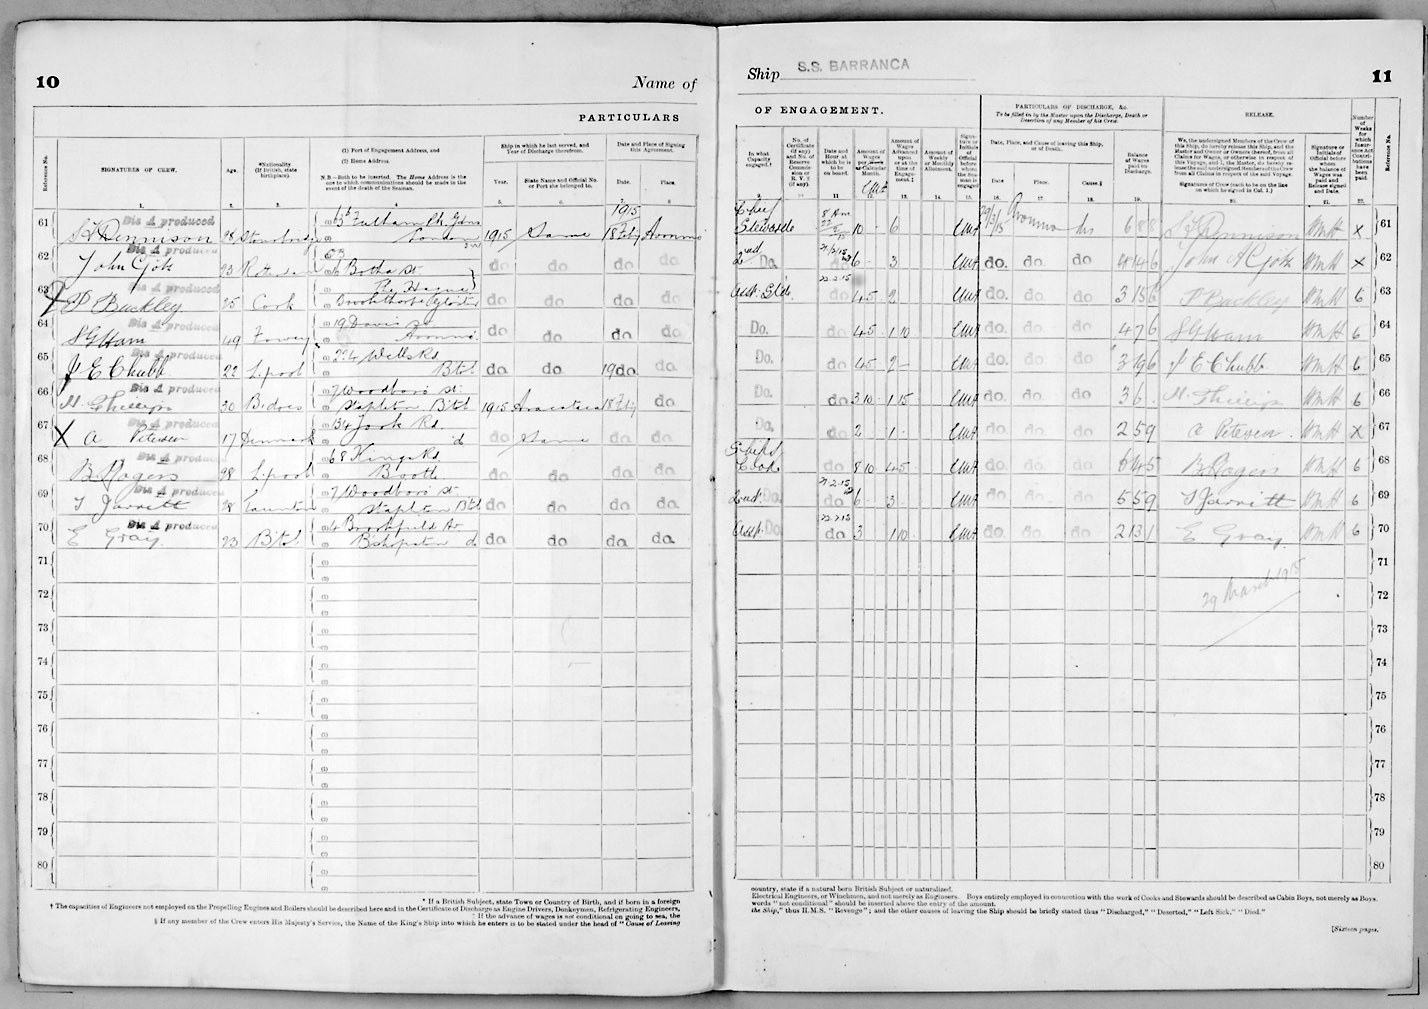 10
Name of
PARTICULARS
Reference No.
SIGNATURES OF CREW.
Age.
*Nationality
(If British, state
birthplace).
(1) Port of Engagement Address, and
(2) Home Address.
N.B.—Both to be inserted. The Home Address is the
one to which communications should be made in the
event of the death of the Seaman.
Ship in which he last served, and
Year of Discharge therefrom.
Year.
State Name and Official No.
or Port she belonged to.
Date and Place of Signing
this Agreement.
Date.
Place.
1. 2. 3. 4. 5. 6. 7. 8.
1915
61 Dis A produced
Dennison 28 Stourbridge
Fulham Pk Gdns
London 1915 Same 18 Feby Avonmo
62 Dis A produced
John Gjok 23 Rotterdam
Botha St
The Hague do do do do
63 Dis A produced
X P Buckley 25 Cook
do do do do
64 Dis A produced
S G Ham 49 Fowey
19 Davis
Avonmo. do do do do
65 Dis A produced
J E Chubb 22 Lpool
224 Wells Rd
Btol do do 19 do do
66 Dis A produced
M. Phillips 30
7 Woodboro St.
Stapleton Bitol 1915 Aracataca 18 Feby do
67 Dis A produced
X A Petersen 17 Denmark
134 York Rd.
do do Same do do
68 Dis A produced
B Rogers 28 Lpool
68 Kings Rd
Bootle do do do do
69 Dis A produced
T Jarrett 28 Taunton
7 Woodboro St.
Stapleton Btol do do do do
70 Dis A produced
E Gray 23 Bitol
4 Brookfield Av
Bishopston do do do do do
71
72
73
74
75
76
77
78
79
80
* If a British Subject, state Town or Country of Birth, and if born in a foreign
† The capacities of Engineers not employed on the Propelling Engines and Boilers should be described here and in the Certificate of Discharge as Engine Drivers, Donkeymen, Refrigerating Engineers,
‡ If the advance of wages is not conditional on going to sea, the
§ If any member of the Crew enters His Majesty's Service, the Name of the King's Ship into which he enters is to be stated under the head of "Cause of Leaving
Ship S.S. BARRANCA
11
OF ENGAGEMENT.
PARTICULARS OF DISCHARGE, &c.
To be filled in by the Master upon the Discharge, Death or
Desertion of any Member of his Crew.
RELEASE.
In what
Capacity
engaged.†
No. of
Certificate
(if any)
and No. of
Reserve
Commission
or
R. V. 2
(if any).
Date and
Hour at
which
to be
on
board.
Amount of
Wages
per
Calendar
Month.
Amount of
Wages
Advanced
upon
or at the
time of
Engagement.‡
Amount of
Weekly
or Monthly
Allotment.
Signature or
Initials
of
Official
before
whom
the Seaman is
engaged
Date, Place, and Cause of leaving this Ship,
or of Death.
Date.
Place.
Cause.§
Balance
of Wages
paid on
Discharge.
We, the undersigned Members of the Crew of
this Ship, do hereby release this Ship, and the
Master and Owner or Owners thereof, from all
Claims for Wages, or otherwise in respect of
this Voyage, and I, the Master, do hereby release
the said undersigned Members of the Crew
from all Claims in respect of the said Voyage.
Signatures of Crew (each to be on the line
on which he signed in Col. 1.)
Signature or
Initials of
Official before
whom
the balance of
Wages was
paid and
Release signed
and Date.
Number
of
Weeks
for
which
Insurance Act
Contributions
have
been
paid.
Reference No.
9. 10. 11. 12. 13. 14. 15. 16. 17. 18. 19. 20. 21. 22.
Chief
Steward 10 6 29/3/15 Avonmo dis 6 8 8 Dennison WmH X 61
2nd Do. 6 3 do. do do John A Gjok WmH X 62
22.2.15
Asst. Std. 45 2 do. do do 3 15 6 P Buckley WmH 6 63
Do. do 45 1 10 do. do do 4 7 6 S G Ham WmH 6 64
Do. do 45 2 do. do. do 3 9 6 J E Chubb WmH 6 65
Do. do 3 10 1 15 do. do. do 3 6 M. Phillips WmH 6 66
Do. do 2 1 do. do. do 2 5 9 A Petersen WmH X 67
Ships
Cook do 8 10 45 do. do. do 6 4 5 B Rogers WmH 6 68
2nd. Do. do 6 3 do. do. do 5 5 9 T Jarrett WmH 6 69
22.2.15
Asst. Do. do 3 1 10 do. do. do 2 13 1 E Gray WmH 6 70
29 March 1915
71
72
73
74
75
76
77
78
79
80
country, state if a natural born British Subject or naturalized.
Electrical Engineers, or Winchmen, and not merely as Engineers. Boys entirely employed in connection with the work of Cooks and Stewards should be described as Cabin Boys, not merely as Boys.
words "not conditional" should be inserted above the entry of the amount.
the Ship," thus H.M.S. "Revenge"; and the other causes of leaving the Ship should be briefly stated thus "Discharged," "Deserted," "Left Sick," "Died."
[Sixteen pages.